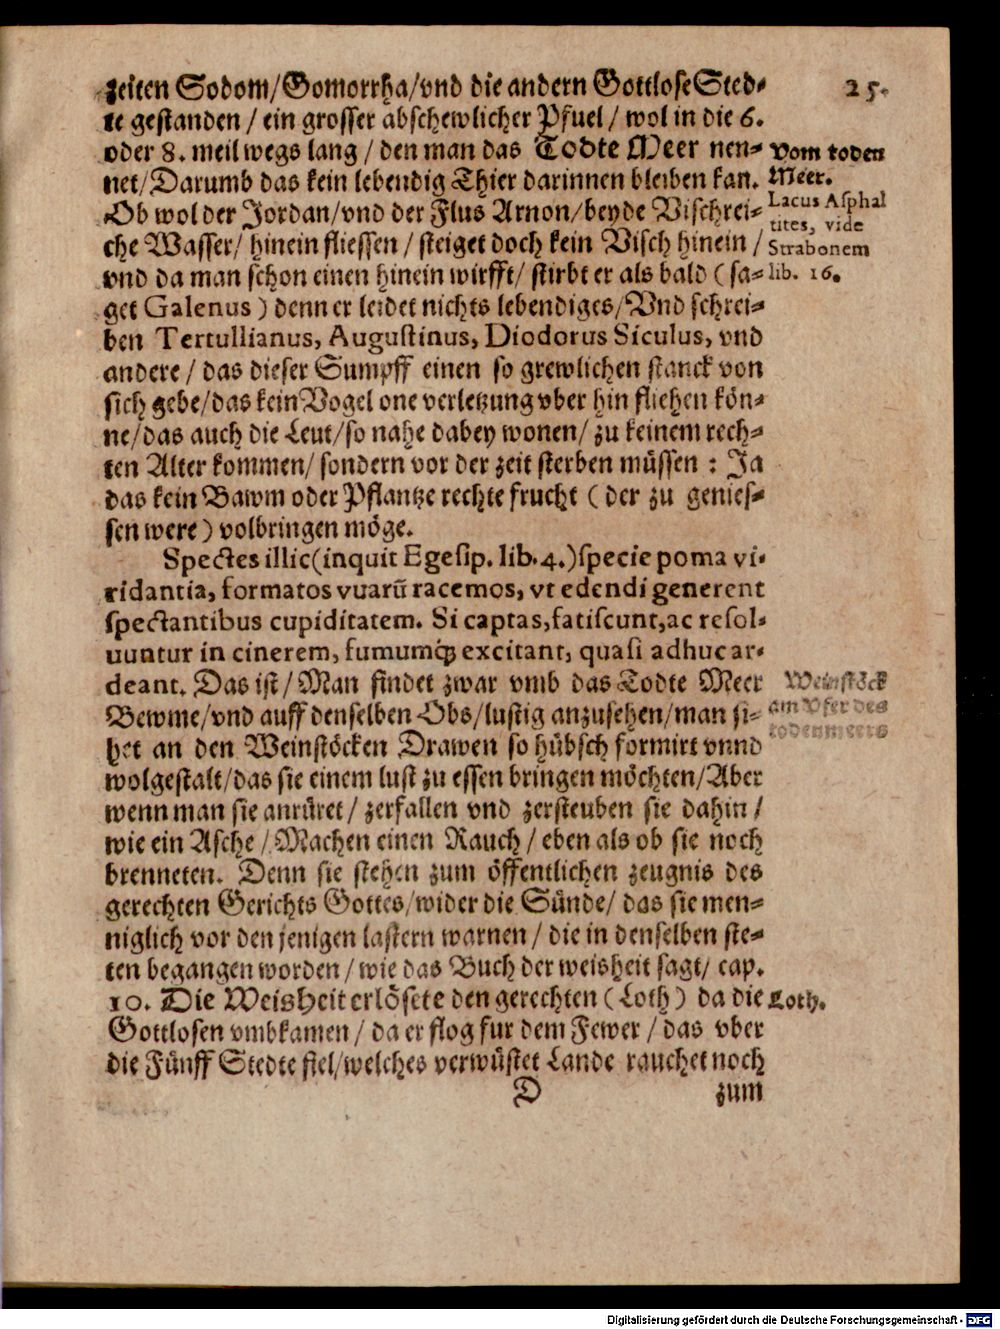 25.
zeiten Sodom/Gomorrha/vnd die andern Gottlose Sted⸗
te gestanden / ein grosser abschewlicher Pfuel / wol in die 6.
oder 8. meil wegs lang / den man das Todte Meer nen⸗
net/Darumb das kein lebendig Thier darinnen bleiben kan.
Ob wol der Jordan/vnd der Flus Arnon/beyde Vischrei⸗
che Wasser/ hinein fliessen / steiget doch kein Visch hinein /
vnd da man schon einen hinein wirfft/ stirbt er als bald (sa⸗
get Galenus) denn er leidet nichts lebendiges/Vnd schrei⸗
ben Tertullianus, Augustinus, Diodorus Siculus, vnd
andere / das dieser Sumpff einen so grewlichen stanck von
sich gebe/das kein Vogel one verletzung vber hin fliehen kön⸗
ne/das auch die Leut/so nahe dabey wonen/ zu keinem rech⸗
ten Alter kommen/ sondern vor der zeit sterben müssen : Ja
das kein Bawm oder Pflantze rechte frucht ( der zu genies⸗
sen were) volbringen möge.
Spectes illic(inquit Egesip. lib.4.)specie poma vi-
ridantia, formatos vuarū racemos, vt edendi generent
spectantibus cupiditatem. Si captas,fatiscunt,ac resol-
uuntur in cinerem, fumumq́; excitant, quasi adhuc ar-
deant. Das ist / Man findet zwar vmb das Todte Meer
Bewme/vnd auff denselben Obs/lustig anzusehen/man si⸗
het an den Weinstöcken Drawen so hübsch formirt vnnd
wolgestalt/das sie einem lust zu essen bringen möchten/Aber
wenn man sie anrüret / zerfallen vnd zersteuben sie dahin /
wie ein Asche / Machen einen Rauch / eben als ob sie noch
brenneten. Denn sie stehen zum öffentlichen zeugnis des
gerechten Gerichts Gottes/wider die Sünde/ das sie men⸗
niglich vor den jenigen lastern warnen / die in denselben ste⸗
ten begangen worden / wie das Buch der weisheit sagt/ cap.
10. Die Weisheit erlösete den gerechten (Loth) da die
Gottlosen vmbkamen / da er flog fur dem Fewer / das vber
die Fünff Stedte fiel/welches verwüstet Lande rauchet noch
D zum
Vom toden
Meer.
Lacus Asphal
tites, vide
Strabonem
lib. 16.
Weinstöck
am Vfer des
todenmeers
Loth.
Digitalisierung gefördert durch die Deutsche Forschungsgemeinschaft - DFG